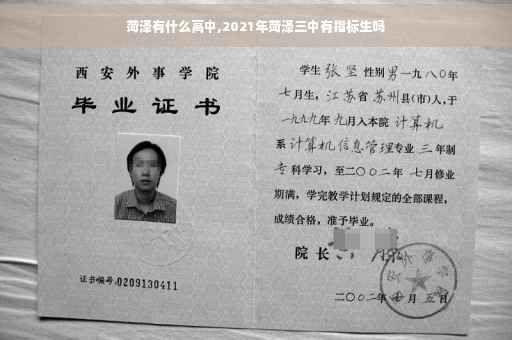 菏泽有什么高中,2021年菏泽三中有指标生吗
西安外事学院
毕业证书
证书编号:0209130411
学生 张坚 性别 男 一九八〇年
七月生, 江苏省 苏州县(市)人,于
一九九九年 九月入本院 计算机
系 计算机信息管理专业 三 年制
专科学习, 至二〇〇二年 七月修业
期满, 学完教学计划规定的全部课程,
成绩合格, 准予毕业。
院长
二〇〇二年 月 五日